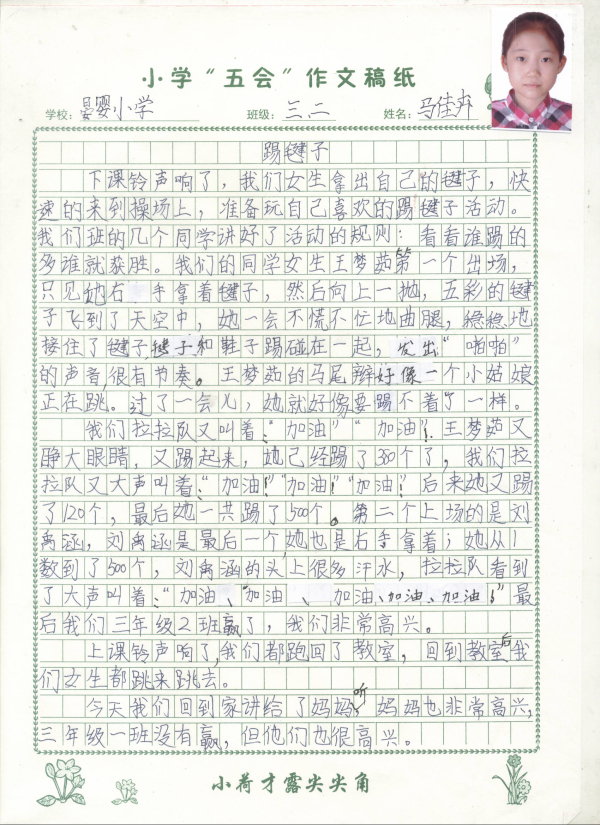 小学“五会”作文稿纸
学校：晏婴小学 班级：三.二 姓名：马佳卉
踢毽子
下课铃声响了，我们女生拿出自己的毽子，快
速的来到操场上，准备玩自己喜欢的踢毽子活动。
我们班的几个同学讲好了活动的规则：看看谁踢的
多谁就获胜。我们的同学女生王梦茹第一个出场，
只见她右手拿着毽子，然后向上一抛，五彩的毽
子飞到了天空中，她一会不慌不忙地曲腿，稳稳地
接住了毽子毽子和鞋子踢碰在一起，发出“啪啪”
的声音，很有节奏。王梦茹的马尾辫好像一个小姑娘
正在跳。过了一会儿，她就好像要踢不着了一样。
我们拉拉队又叫着：“加油”“加油！王梦茹又
睁大眼睛，又踢起来，她已经踢了380个了，我们拉
拉队又大声叫着：“加油！”“加油！”“加油！”后来她又踢
了120个，最后她一共踢了500个。第二个上场的是刘
禹涵，刘禹涵是最后一个，她也是右手拿着；她从1
数到了500个，刘禹涵的头上很多汗水，拉拉队看到
了大声叫着：“加油、“加油、加油、加油、加油！”最
后我们三年级2班赢了，我们非常高兴。
上课铃声响了，我们都跑回了教室，回到教室后我
们女生都跳来跳去。
今天我们回到家讲给了妈妈听，妈妈也非常高兴，
三年级一班没有赢，但他们也很高兴。
小荷才露尖尖角